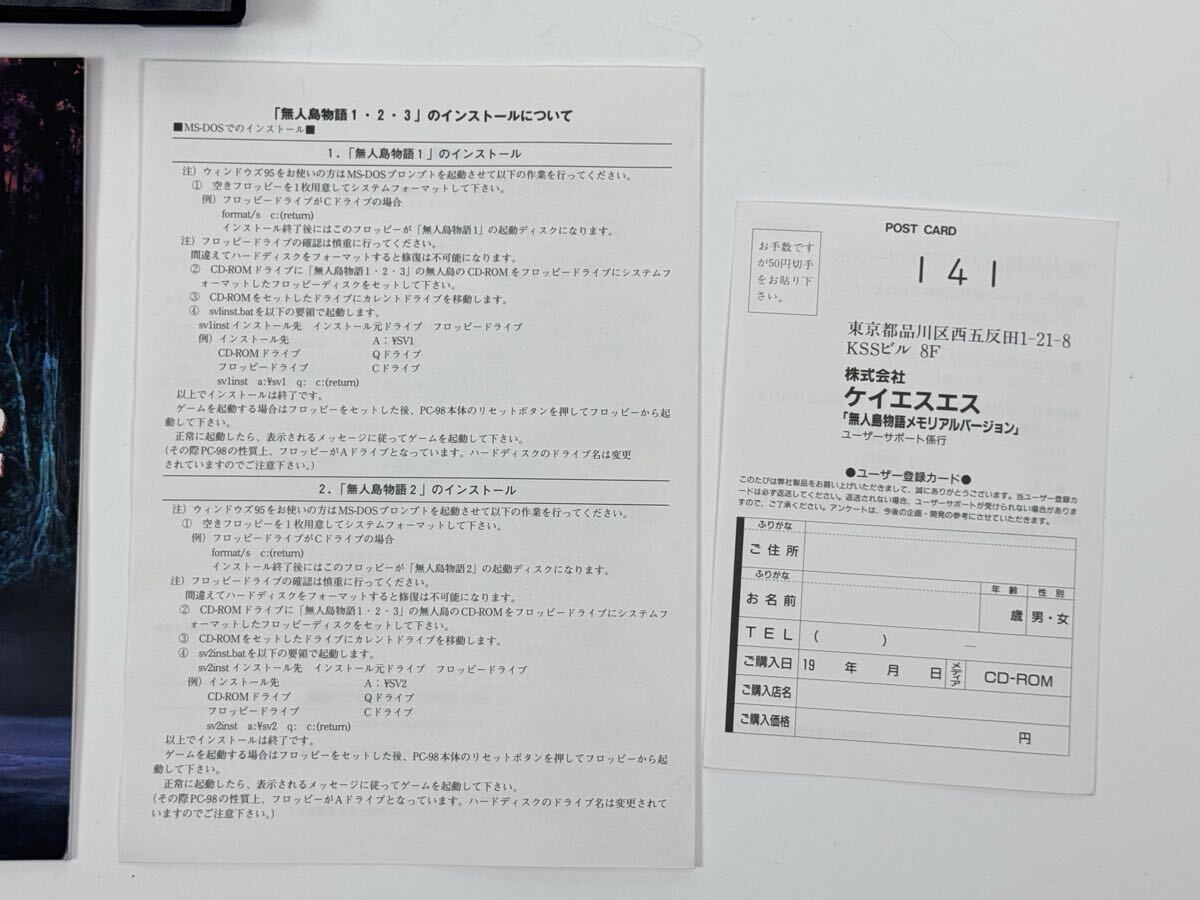 「無人島物語1・2・3」のインストールについて
■MS-DOSでのインストール■
1.「無人島物語1」のインストール
注）ウィンドウズ95をお使いの方はMS-DOSプロンプトを起動させて以下の作業を行ってください。
① 空きフロッピーを1枚用意してシステムフォーマットして下さい。
例）フロッピードライブがCドライブの場合
format/s c:(return)
インストール終了後にはこのフロッピーが「無人島物語1」の起動ディスクになります。
注）フロッピードライブの確認は慎重に行ってください。
間違えてハードディスクをフォーマットすると修復は不可能になります。
② CD-ROMドライブに「無人島物語1・2・3」の無人島のCD-ROMをフロッピードライブにシステムフ
ォーマットしたフロッピーディスクをセットして下さい。
③ CD-ROMをセットしたドライブにカレントドライブを移動します。
④ sv1inst.batを以下の要領で起動します。
sv1inst インストール先 インストール元ドライブ フロッピードライブ
例）インストール先 A：¥SV1
CD-ROMドライブ Qドライブ
フロッピードライブ Cドライブ
sv1inst a:¥sv1 q: c:(return)
以上でインストールは終了です。
ゲームを起動する場合はフロッピーをセットした後、PC-98本体のリセットボタンを押してフロッピーから起
動して下さい。
正常に起動したら、表示されるメッセージに従ってゲームを起動して下さい。
(その際PC-98の性質上、フロッピーがAドライブとなっています。ハードディスクのドライブ名は変更
されていますのでご注意下さい。)
2.「無人島物語2」のインストール
注）ウィンドウズ95をお使いの方はMS-DOSプロンプトを起動させて以下の作業を行って下さい。
① 空きフロッピーを1枚用意してシステムフォーマットして下さい。
例）フロッピードライブがCドライブの場合
format/s c:(return)
インストール終了後にはこのフロッピーが「無人島物語2」の起動ディスクになります。
注）フロッピードライブの確認は慎重に行ってください。
間違えてハードディスクをフォーマットすると修復は不可能になります。
② CD-ROMドライブに「無人島物語1・2・3」の無人島のCD-ROMをフロッピードライブにシステムフ
ォーマットしたフロッピーディスクをセットして下さい。
③ CD-ROMをセットしたドライブにカレントドライブを移動します。
④ sv2inst.batを以下の要領で起動します。
sv2inst インストール先 インストール元ドライブ フロッピードライブ
例）インストール先 A：¥SV2
CD-ROMドライブ Qドライブ
フロッピードライブ Cドライブ
sv2inst a:¥sv2 q: c:(return)
以上でインストールは終了です。
ゲームを起動する場合はフロッピーをセットした後、PC-98本体のリセットボタンを押してフロッピーから起
動して下さい。
正常に起動したら、表示されるメッセージに従ってゲームを起動して下さい。
(その際PC-98の性質上、フロッピーがAドライブとなっています。ハードディスクのドライブ名は変更されて
いますのでご注意下さい。)
POST CARD
お手数です
が50円切手
をお貼り下
さい。
141
東京都品川区西五反田1-21-8
KSSビル 8F
株式会社
ケイエスエス
「無人島物語メモリアルバージョン」
ユーザーサポート係行
●ユーザー登録カード●
このたびは弊社製品をお買い上げいただきまして、誠にありがとうございます。当ユーザー登録カ
ードは必ず返送してください。返送されない場合、ユーザーサポートが受けられない場合がありま
すので、ご了承ください。アンケートは、今後の企画・開発の参考にさせていただきます。
ふりかな
ご住所
ふりかな
お名前
年齢 性別
歳 男・女
TEL ( ) －
ご購入日 19 年 月 日 メディア CD-ROM
ご購入店名
ご購入価格 円